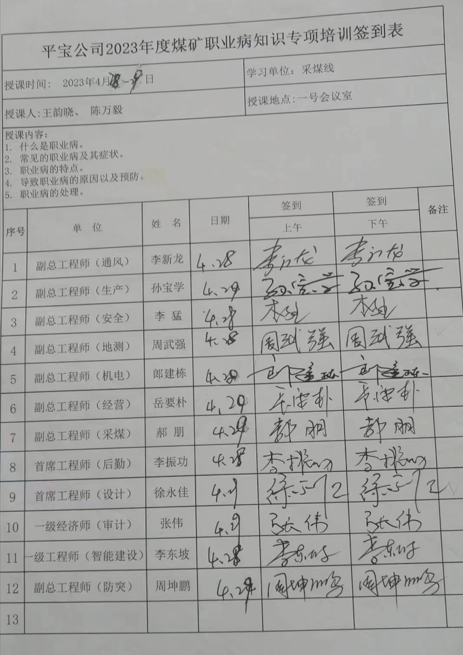 平宝公司2023年度煤矿职业病知识专项培训签到表
授课时间: 2023年4月28-29日 学习单位: 采煤线
授课人:王韵晓、 陈万毅 授课地点:一号会议室
授课内容:
1. 什么是职业病。
2. 常见的职业病及其症状。
3. 职业病的特点。
4. 导致职业病的原因以及预防。
5. 职业病的处理。
序号 单 位 姓 名 日期 签到 签到 备注
上午 下午
1 副总工程师（通风） 李新龙 4.28 李新龙 李新龙
2 副总工程师（生产） 孙宝学 4.29 孙宝学 孙宝学
3 副总工程师（安全） 李 猛 4.28 李猛 李猛
4 副总工程师（地测） 周武强 4.28 周武强 周武强
5 副总工程师（机电） 郎建栋 4.28 郎建栋 郎建栋
6 副总工程师（经营） 岳要朴 4.29 岳要朴 岳要朴
7 副总工程师（采煤） 郝 朋 4.29 郝朋 郝朋
8 首席工程师（后勤） 李振功 4.28 李振功 李振功
9 首席工程师（设计） 徐永佳 4.9
10 一级经济师（审计） 张伟 4.9 张伟 张伟
11 一级工程师（智能建设） 李东坡 4.28 李东坡 李东坡
12 副总工程师（防突） 周坤鹏 4.29 周坤鹏 周坤鹏
13